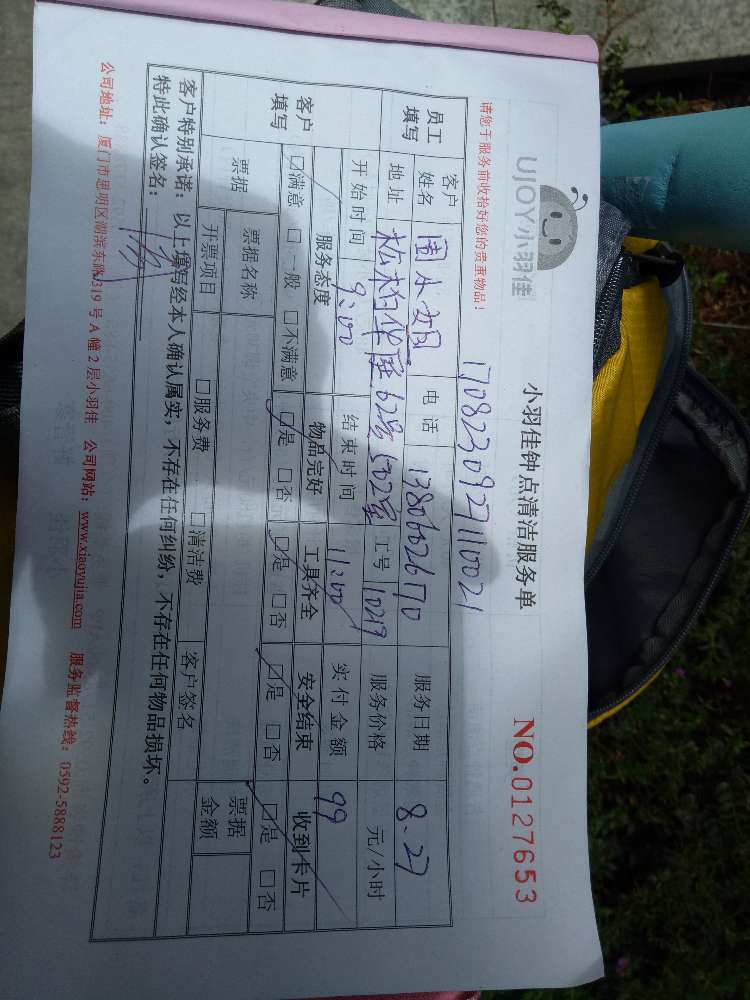 UJOY小羽佳
小羽佳钟点清洁服务单
NO.0127653
请您于服务前收拾好您的贵重物品！
1708230927110021
员工填写 客户姓名 电话 13806026170 服务日期 8.27
地址 松柏华庭62号502室 工号 10219 服务价格 元/小时
开始时间 9:00 结束时间 11:00 实付金额 99
客户填写 服务态度 物品完好 工具齐全 安全结束 收到卡片
□满意 □一般 □不满意 □是 □否 □是 □否 □是 □否 □是 □否
票据 票据名称 □服务费 □清洁费 票据金额
开票项目 客户签名
客户特别承诺：以上填写经本人确认属实，不存在任何纠纷，不存在任何物品损坏。
特此确认签名：
公司地址：厦门市思明区湖滨东路319号A幢2层小羽佳 公司网站：www.xiaoyujia.com 服务监督热线：0592-5888123